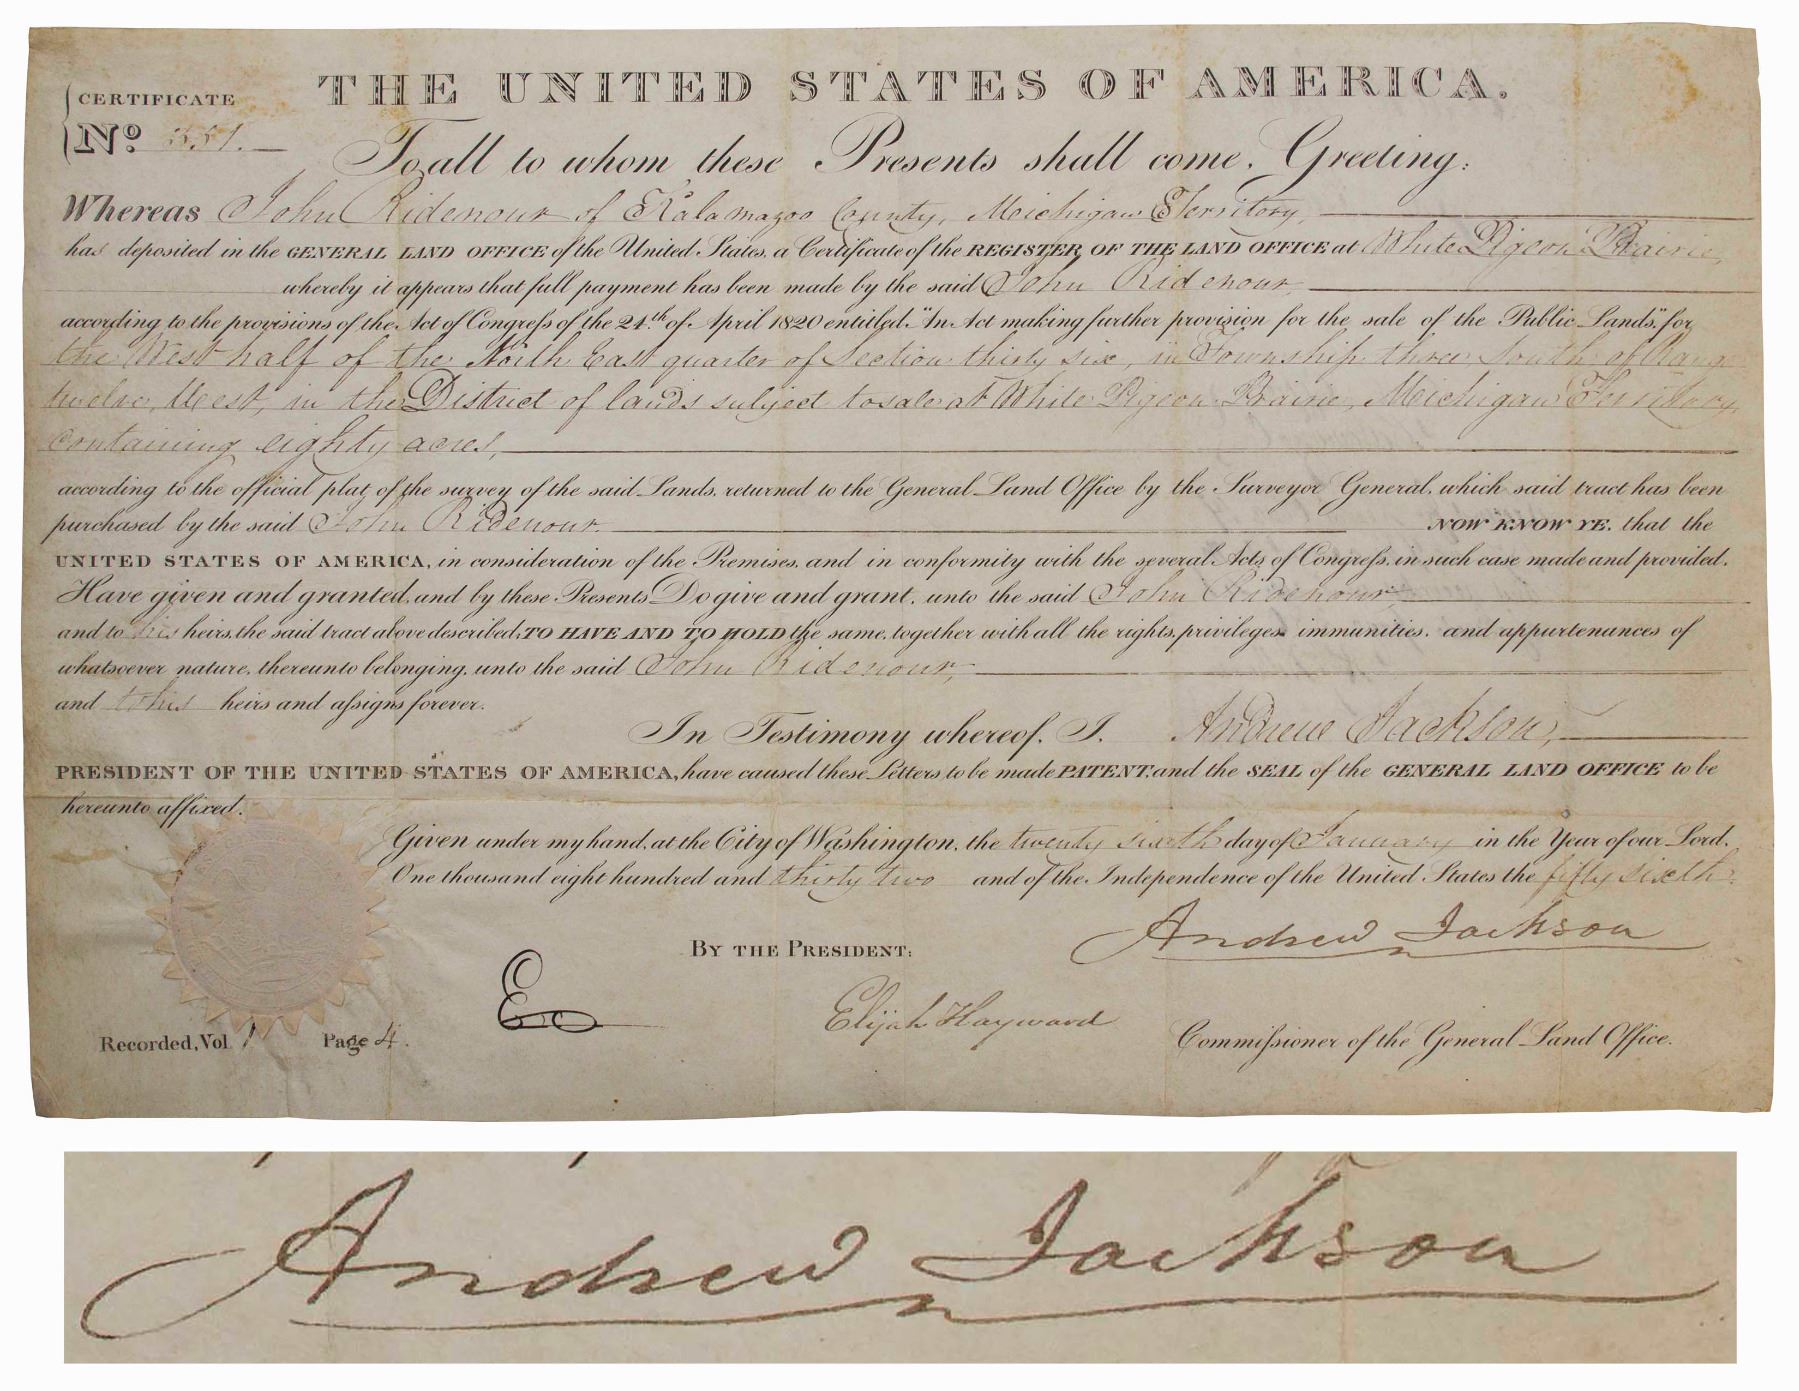 CERTIFICATE
No. 551.
THE UNITED STATES OF AMERICA.
To all to whom these Presents shall come, Greeting:
Whereas John Ridenour of Kalamazoo County, Michigan Territory,
has deposited in the GENERAL LAND OFFICE of the United States, a Certificate of the REGISTER OF THE LAND OFFICE at White Pigeon Prairie,
whereby it appears that full payment has been made by the said John Ridenour,
according to the provisions of the Act of Congress of the 24th of April 1820 entitled "An Act making further provision for the sale of the Public Lands," for
the West half of the North East quarter of Section thirty six, in Township three South of Range
twelve West, in the District of lands subject to sale at White Pigeon Prairie, Michigan Territory,
containing eighty acres,
according to the official plat of the survey of the said Lands, returned to the General Land Office by the Surveyor General, which said tract has been
purchased by the said John Ridenour. NOW KNOW YE, that the
UNITED STATES OF AMERICA, in consideration of the Premises, and in conformity with the several Acts of Congress, in such case made and provided,
Have given and granted, and by these Presents Do give and grant, unto the said John Ridenour,
and to his heirs, the said tract above described; TO HAVE AND TO HOLD the same, together with all the rights, privileges, immunities, and appurtenances of
whatsoever nature, thereunto belonging, unto the said John Ridenour,
and to his heirs and assigns forever.
In Testimony whereof, I, Andrew Jackson,
PRESIDENT OF THE UNITED STATES OF AMERICA, have caused these Letters to be made PATENT, and the SEAL of the GENERAL LAND OFFICE to be
hereunto affixed.
Given under my hand, at the City of Washington, the twenty sixth day of January in the Year of our Lord,
One thousand eight hundred and thirty two and of the Independence of the United States the fifty sixth.
Andrew Jackson
BY THE PRESIDENT:
Elijah Hayward
Commissioner of the General Land Office.
Recorded, Vol 1 Page 4.
Andrew Jackson